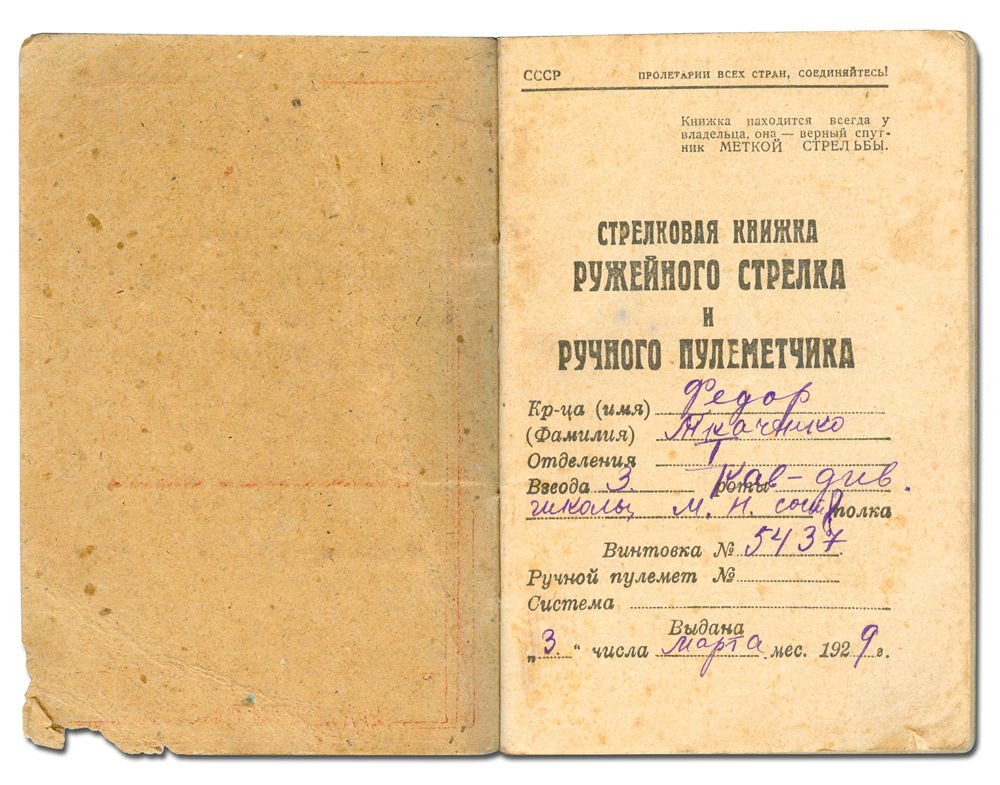 СССР ПРОЛЕТАРИИ ВСЕХ СТРАН, СОЕДИНЯЙТЕСЬ!
Книжка находится всегда у
владельца, она — верный спут-
ник МЕТКОЙ СТРЕЛЬБЫ.
СТРЕЛКОВАЯ КНИЖКА
РУЖЕЙНОГО СТРЕЛКА
И
РУЧНОГО ПУЛЕМЕТЧИКА
Кр-ца (имя) Федор
(Фамилия) Ткаченко
Отделения I
Взвода 3. роты Кав-див.
школы М. Н. сост полка
Винтовка № 5437
Ручной пулемет №
Система
Выдана
„3.“ числа марта мес. 1929 г.